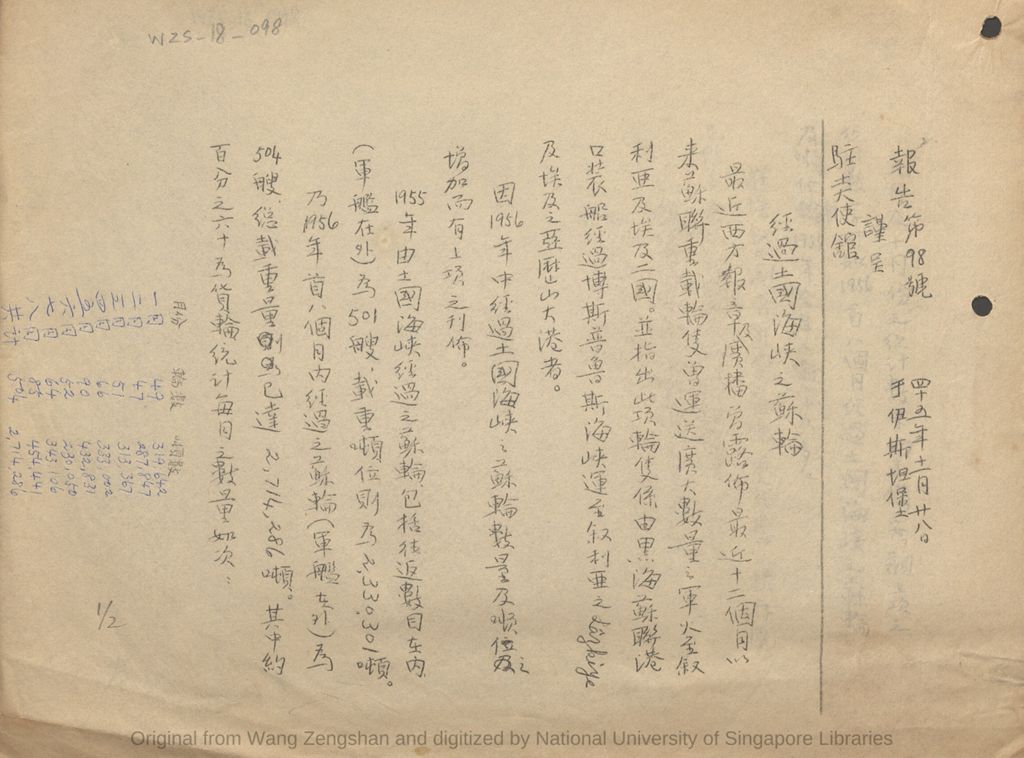 WZS-18-098
報告第98號 四十五年十一月廿八日
謹呈 于伊斯坦堡
駐土大使館
經過土國海峽之蘇輪
最近西方報章及廣播曾露佈最近十二個月以
來蘇聯重載輪隻曾運送廣大數量之軍火至敘
利亞及埃及二國。並指出此項輪隻係由黑海蘇聯港
口裝船經過博斯普魯斯海峽運至敘利亞之
及埃及之亞歷山大港者。
因1956年中經過土國海峽之蘇輪數量及噸位之
增加而有上項之刊佈。
1955年由土國海峽經過之蘇輪包括往返數目在內
(軍艦在外)為501艘,載重噸位則為2,330,301噸。
乃1956年首八個月內經過之蘇輪(軍艦在外)為
504艘,總載重量則已達2,714,286噸。其中約
百分之六十為貨輪統計每月之數量如次:
月份 輪數 噸數
一月 49 319,642
二月 47 287,847
三月 51 313,367
四月 66 333,002
五月 90 432,831
六月 52 230,050
七月 64 343,106
八月 85 454,441
共計 504 2,714,286
1/2
Original from Wang Zengshan and digitized by National University of Singapore Libraries